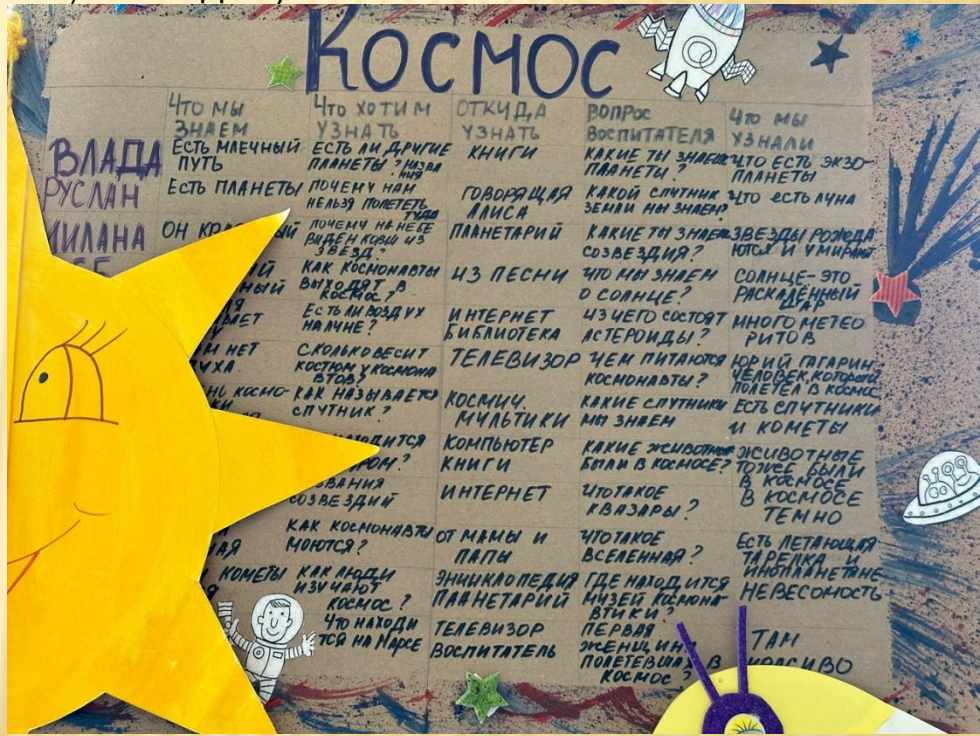 КОСМОС
ЧТО МЫ
ЗНАЕМ
ЧТО ХОТИМ
УЗНАТЬ
ОТКУДА
УЗНАТЬ
ВОПРОС
ВОСПИТАТЕЛЯ
ЧТО МЫ
УЗНАЛИ
ВЛАДА
ЕСТЬ МЛЕЧНЫЙ
ПУТЬ
ЕСТЬ ЛИ ДРУГИЕ
ПЛАНЕТЫ? НАЗВА
НИЯ
КНИГИ
КАКИЕ ТЫ ЗНАЕШЬ
ПЛАНЕТЫ?
ЧТО ЕСТЬ ЭКЗО-
ПЛАНЕТЫ
РУСЛАН
ЕСТЬ ПЛАНЕТЫ
ПОЧЕМУ НАМ
НЕЛЬЗЯ ПОЛЕТЕТЬ
ТУДА
ГОВОРЯЩАЯ
АЛИСА
КАКОЙ СПУТНИК
ЗЕМЛИ МЫ ЗНАЕМ?
ЧТО ЕСТЬ ЛУНА
МИЛАНА
ОН
ПОЧЕМУ НА НЕБЕ
ВИДЕН КОВШ ИЗ
ЗВЕЗД?
ПЛАНЕТАРИЙ
КАКИЕ ТЫ
СОЗВЕЗДИЯ?
ЗВЕЗДЫ РОЖДА
ЮТСЯ И УМИРАЮТ
КАК КОСМОНАВТЫ
ВЫХОДЯТ В
КОСМОС?
ИЗ ПЕСНИ
ЧТО МЫ ЗНАЕМ
О СОЛНЦЕ?
СОЛНЦЕ-ЭТО
РАСКАЛЁННЫЙ
ШАР
ЕСТЬ ЛИ ВОЗДУХ
НА ЛУНЕ?
ИНТЕРНЕТ
БИБЛИОТЕКА
ИЗ ЧЕГО СОСТОЯТ
АСТЕРОИДЫ?
МНОГО МЕТЕО
РИТОВ
НЕТ
СКОЛЬКО ВЕСИТ
КОСТЮМ У КОСМОНА
ВТОВ?
ТЕЛЕВИЗОР
ЧЕМ ПИТАЮТСЯ
КОСМОНАВТЫ?
ЮРИЙ ГАГАРИН
ЧЕЛОВЕК, КОТОРЫЙ
ПОЛЕТЕЛ В КОСМОС
КОСМО-
КАК НАЗЫВАЕТСЯ
СПУТНИК?
КОСМИЧ.
МУЛЬТИКИ
КАКИЕ СПУТНИКИ
МЫ ЗНАЕМ
ЕСТЬ СПУТНИКИ
И КОМЕТЫ
КОМПЬЮТЕР
КНИГИ
КАКИЕ ЖИВОТНЫЕ
БЫЛИ В КОСМОСЕ?
ЖИВОТНЫЕ
ТОЖЕ БЫЛИ
В КОСМОСЕ
СОЗВЕЗДИЙ
ИНТЕРНЕТ
ЧТО ТАКОЕ
КВАЗАРЫ?
В КОСМОСЕ
ТЕМНО
КАК КОСМОНАВТЫ
МОЮТСЯ?
ОТ МАМЫ И
ПАПЫ
ЧТО ТАКОЕ
ВСЕЛЕННАЯ?
ЕСТЬ ЛЕТАЮЩАЯ
ТАРЕЛКА И
ИНОПЛАНЕТЯНЕ
КОМЕТЫ
КАК ЛЮДИ
ИЗУЧАЮТ
КОСМОС?
ЭНЦИКЛОПЕДИЯ
ПЛАНЕТАРИЙ
ГДЕ НАХОДИТСЯ
МУЗЕЙ КОСМОНА
ВТИКИ?
НЕВЕСОМОСТЬ
ЧТО НАХОДИ
ТСЯ НА МАРСЕ
ТЕЛЕВИЗОР
ВОСПИТАТЕЛЬ
ПЕРВАЯ
ПОЛЕТЕВШАЯ В
КОСМОС?
ТАМ
КРАСИВО